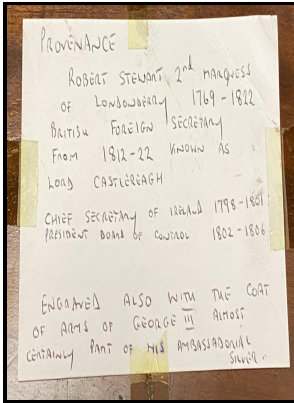 PROVENANCE
ROBERT STEWART, 2nd MARQUESS
OF LONDONDERRY 1769-1822
BRITISH FOREIGN SECRETARY
FROM 1812-22 KNOWN AS
LORD CASTLEREAGH
CHIEF SECRETARY OF IRELAND 1798-1801
PRESIDENT BOARD OF CONTROL 1802-1806
ENGRAVED ALSO WITH THE COAT
OF ARMS OF GEORGE III ALMOST
CERTAINLY PART OF HIS AMBASSADORIAL
SILVER.